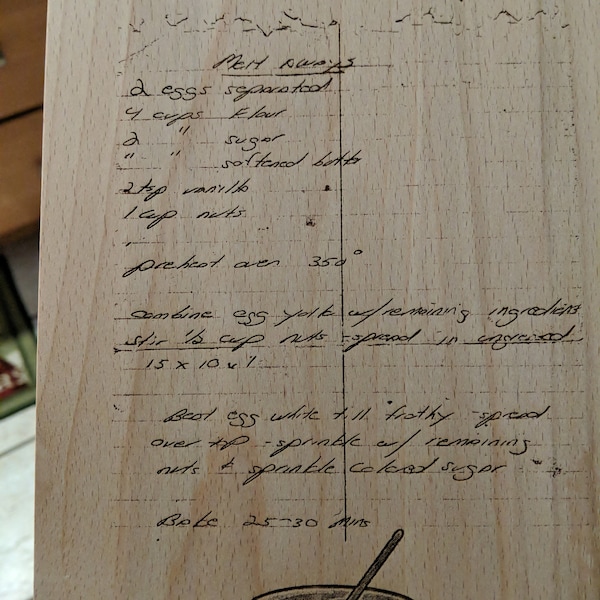 Melt Aways
2 eggs separated
4 cups flour
2 " sugar
" " softened butter
2 tsp vanilla
1 cup nuts
preheat oven 350°
combine egg yolk w/remaining ingredients
stir ½ cup nuts - spread in ungreased
15 x 10 x 1
Beat egg white till frothy - spread
over top - sprinkle w/ remaining
nuts & sprinkle colored sugar
Bake 25-30 mins